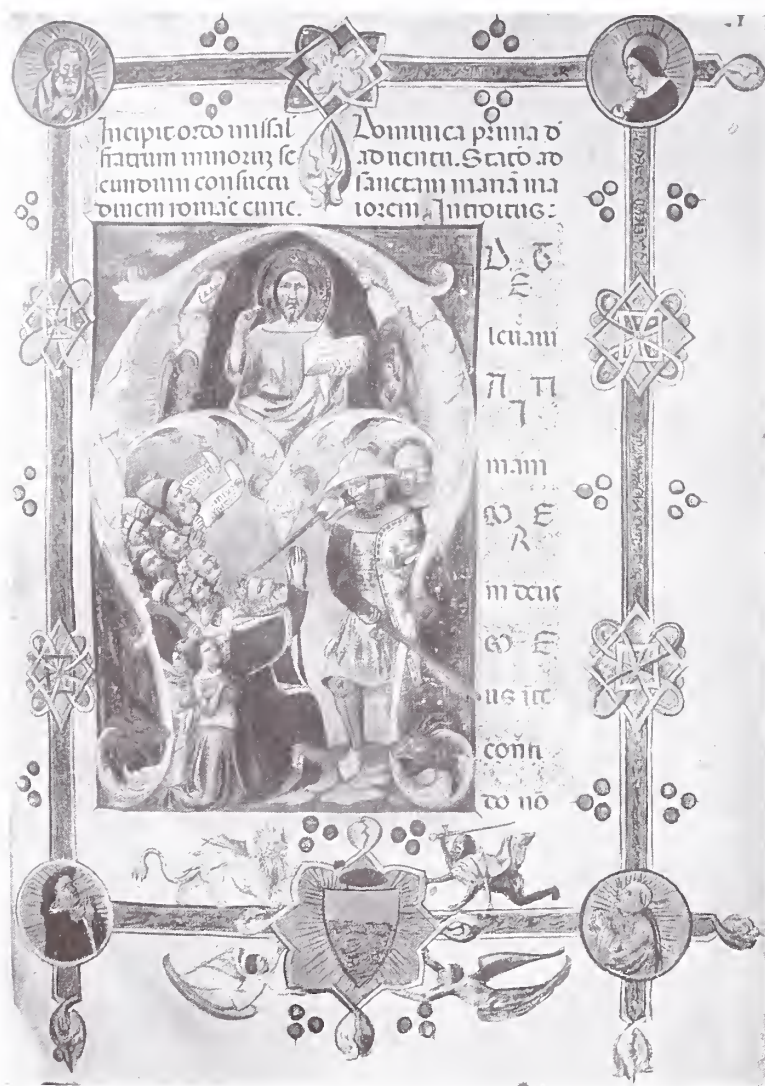 1
Incipit ordo missal
fratrum minoruz se
cundum consuetu
dinem romāe curie.
Dominica prima d
aduentu. Statō. ad
sanctam mariā ma
iorem. Introitus:
D T
E
leuaui
A NI
mam
M E
A
m deus
M E
us ite
confi
do nō